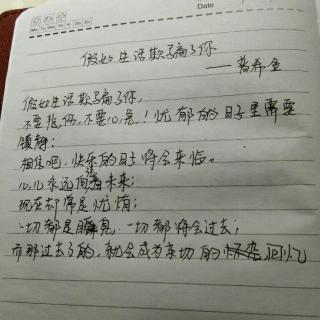 Date
假如生活欺骗了你
——普希金
假如生活欺骗了你,
不要悲伤,不要心急!忧郁的日子里需要
镇静:
相信吧,快乐的日子将会来临。
心儿永远向着未来;
现在却常是忧郁;
一切都是瞬息,一切都将会过去;
而那过去了的,就会成为亲切的怀恋回忆